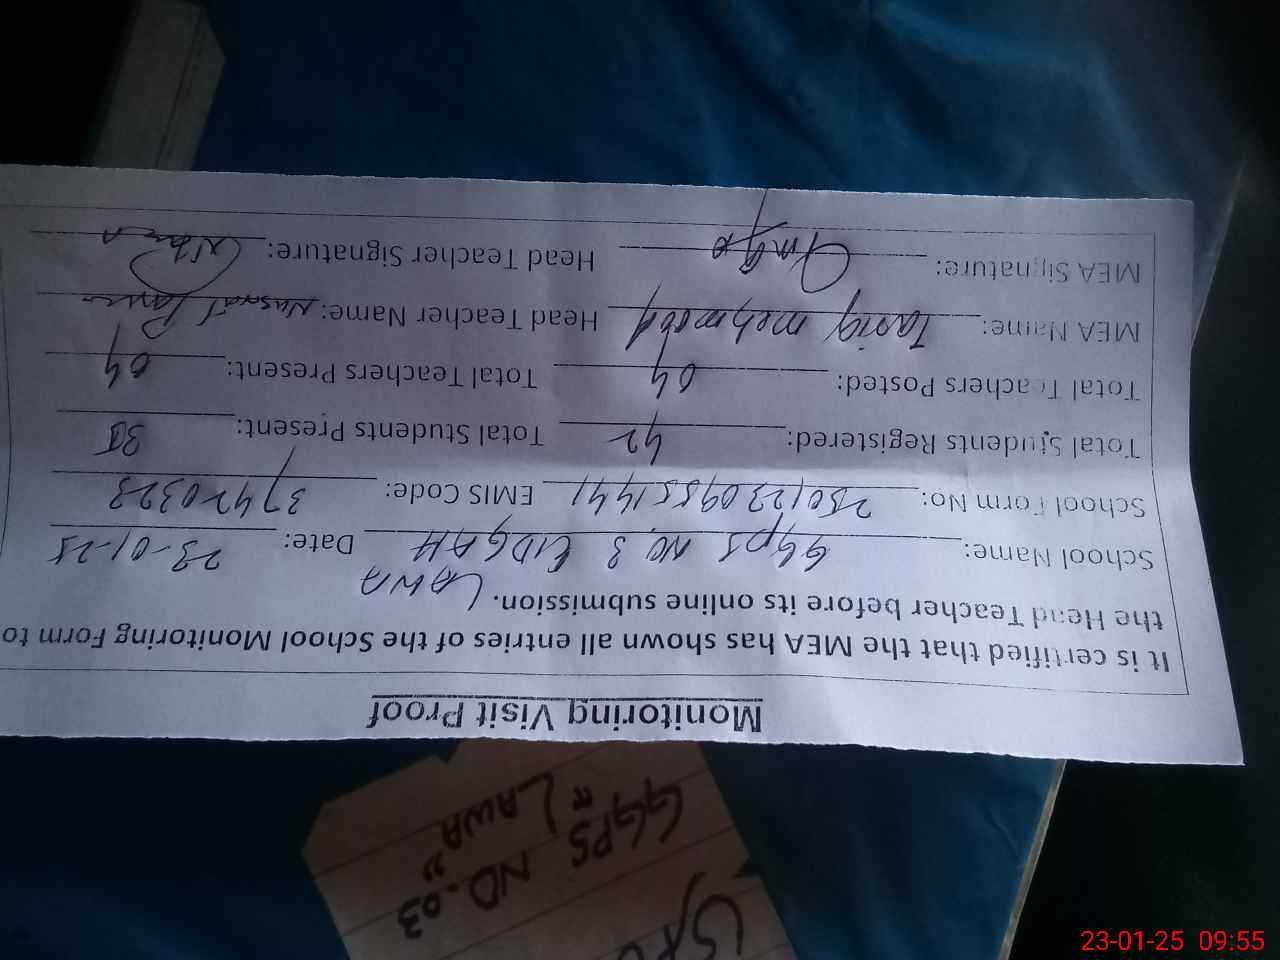 Monitoring Visit Proof
It is certified that the MEA has shown all entries of the School Monitoring Form to
the Head Teacher before its online submission.
LAWA
School Name: GGPS NO 3 EIDGAH Date: 23-01-25
School Form No: 25012309551441 EMIS Code: 37420323
Total Students Registered: 42 Total Students Present: 35
Total Teachers Posted: 04 Total Teachers Present: 04
MEA Name: Tariq mehmood Head Teacher Name: Nusrat Parveen
MEA Signature: Head Teacher Signature:
GGPS NO.03
"LAWA"
23-01-25 09:55